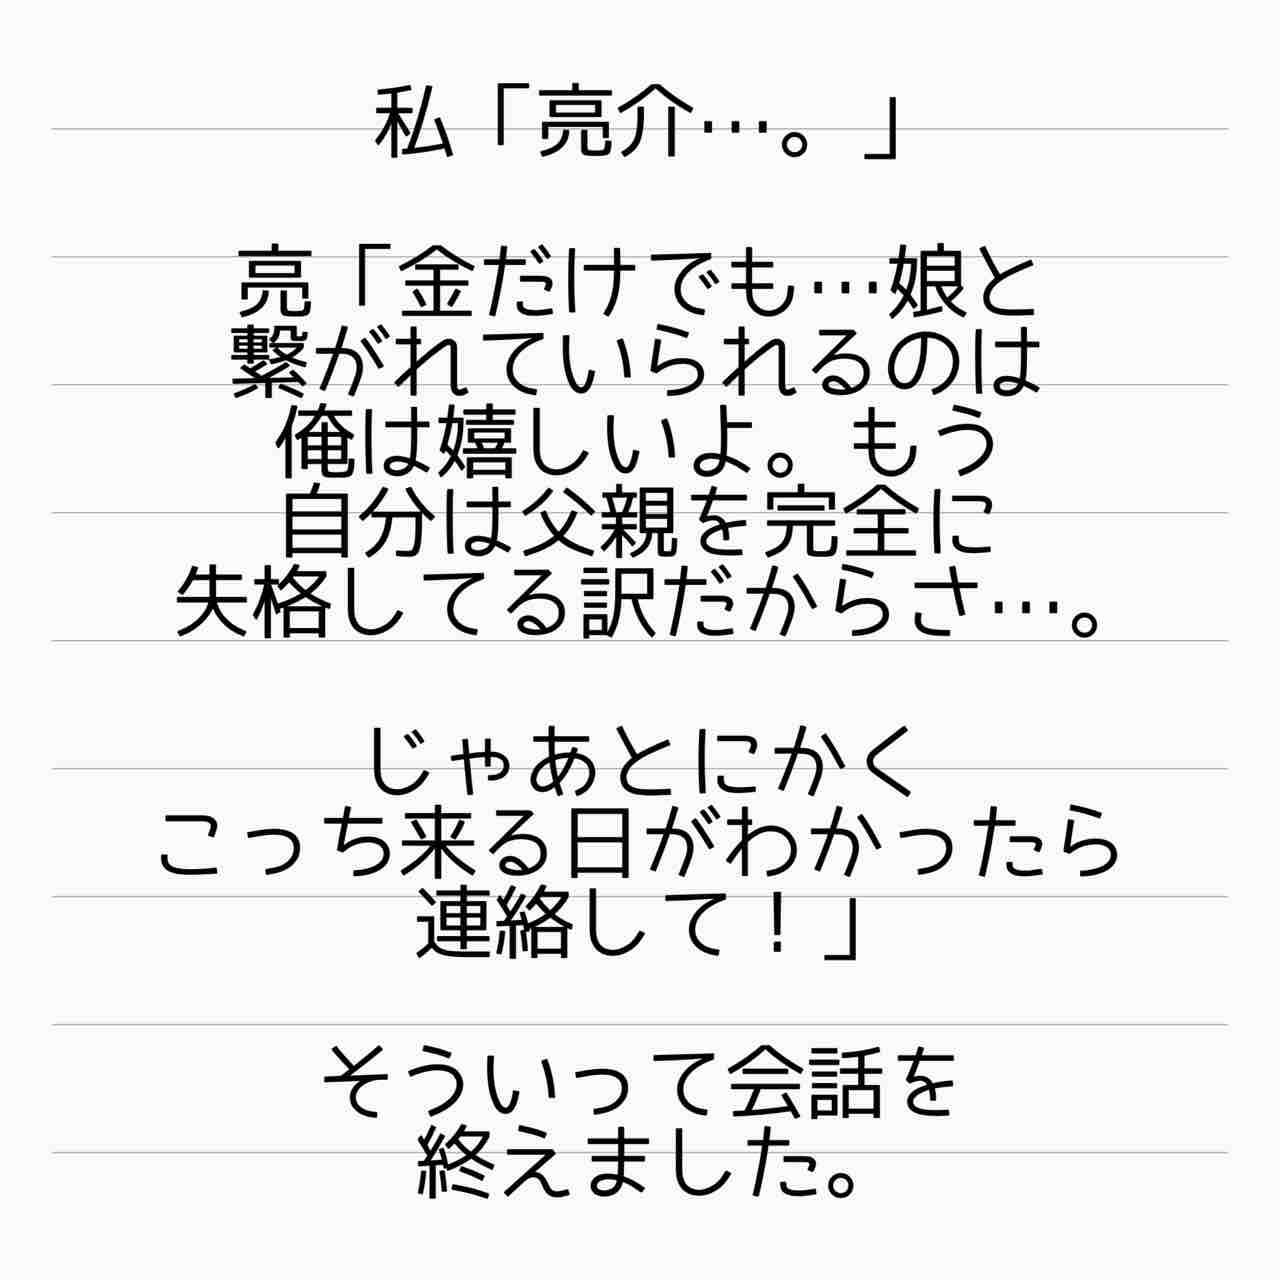 私「亮介…。」
亮「金だけでも…娘と
繋がれていられるのは
俺は嬉しいよ。もう
自分は父親を完全に
失格してる訳だからさ…。
じゃあとにかく
こっち来る日がわかったら
連絡して！」
そういって会話を
終えました。